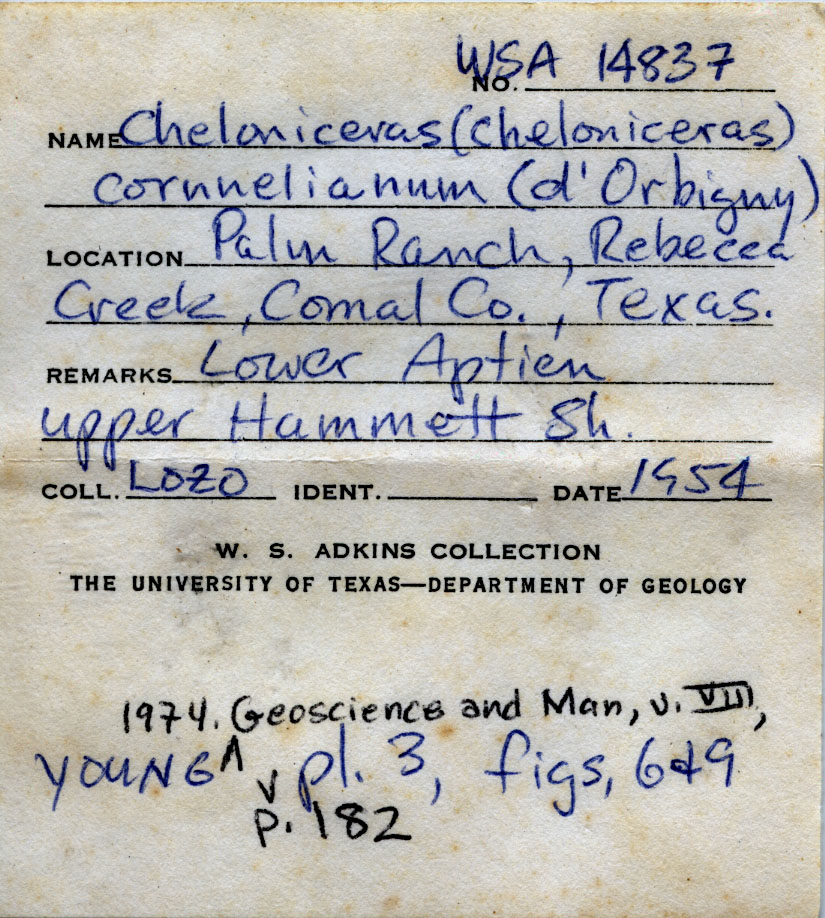 WSA 14837
NO.
NAME Cheloniceras (Cheloniceras)
cornnelianum (d'Orbigny)
LOCATION Palm Ranch, Rebecca
Creek, Comal Co., Texas.
REMARKS Lower Aptien
upper Hammett Sh.
COLL. LOZO IDENT. DATE 1954
W. S. ADKINS COLLECTION
THE UNIVERSITY OF TEXAS—DEPARTMENT OF GEOLOGY
1974. Geoscience and Man, v. VII,
YOUNG ∧ ∨ pl. 3, figs, 6&9
p. 182